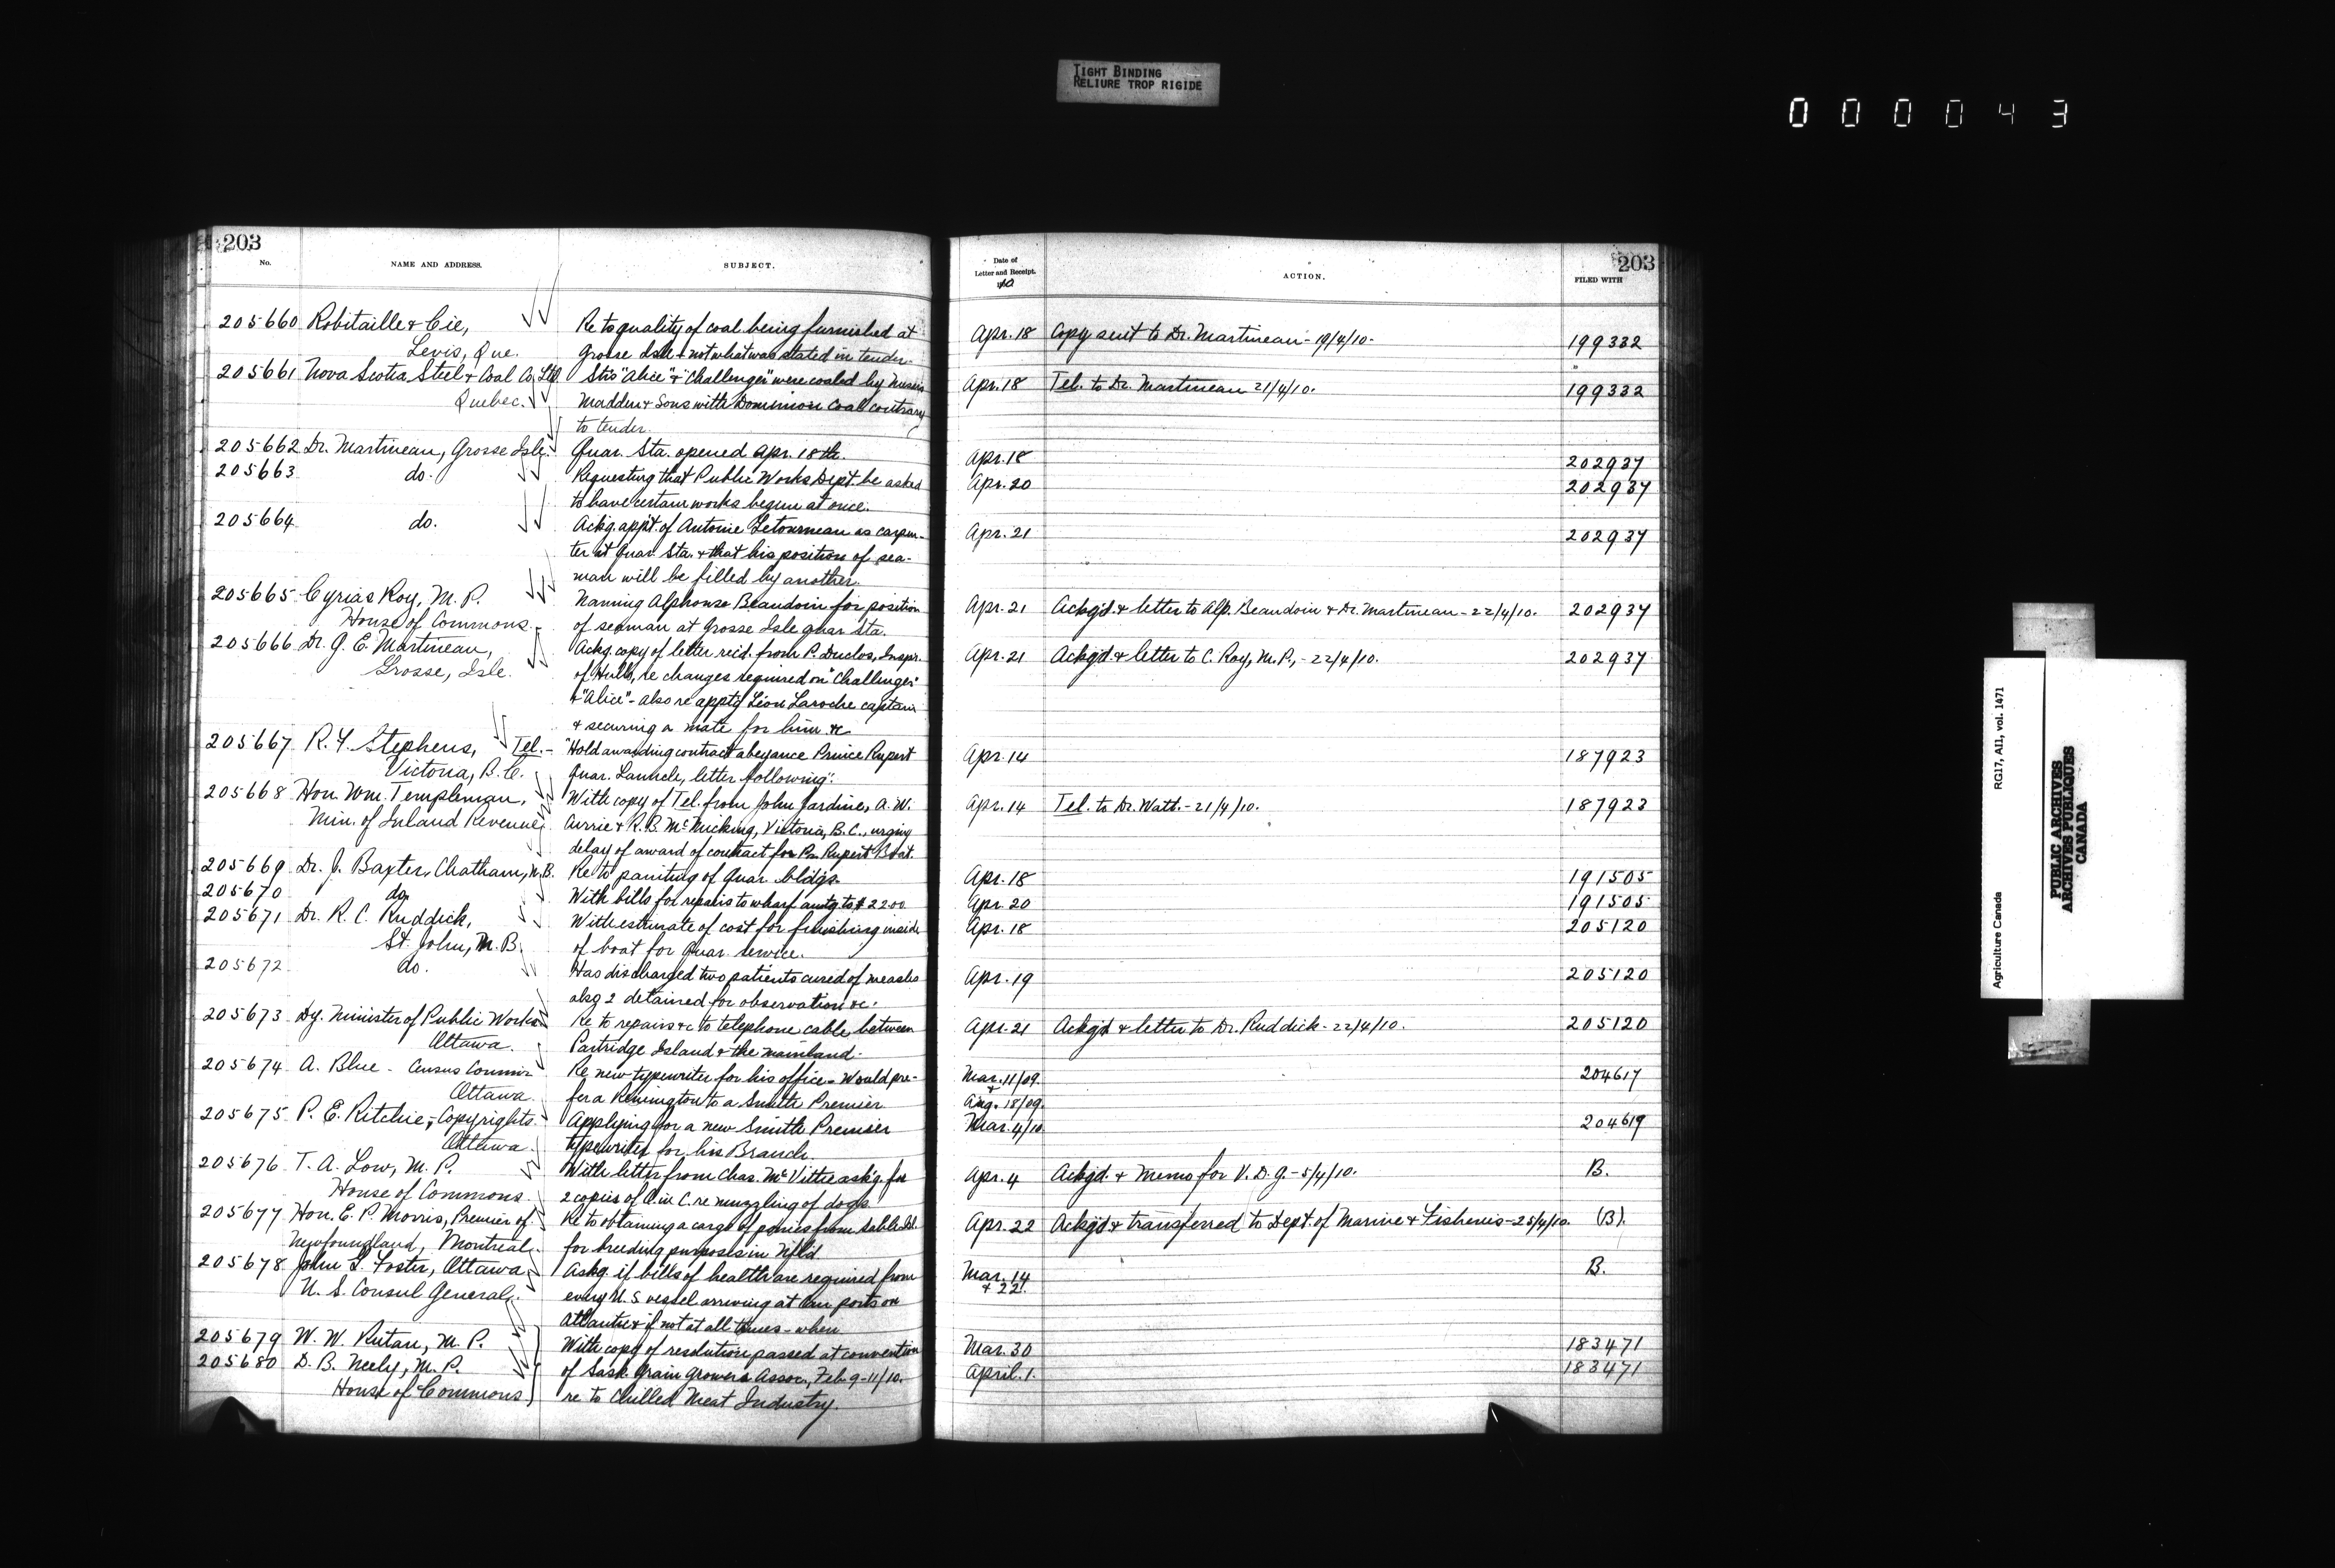 TIGHT BINDING
RELIURE TROP RIGIDE
000043
203
No. NAME AND ADDRESS. SUBJECT.
205660 Robitaille & Cie, Re to quality of coal being furnished at
Levis, Que. Grosse Isle & not what was stated in tender.
205661 Nova Scotia Steel & Coal Co. Ltd. Strs "Alice" & "Challenger" were coaled by Messrs
Quebec. Madden & Sons with Dominion Coal contrary
to tender.
205662 Dr. Martineau, Grosse Isle. Quar. Sta. opened Apr. 18th.
205663 do. Requesting that Public Works Dept. be asked
to have certain works begun at once.
205664 do. Ackg. app't. of Antoine Letourneau as carpen-
ter at Quar. Sta. & that his position of sea-
man will be filled by another.
205665 Cyrias Roy, M. P. Naming Alphonse Beaudoin for position
House of Commons. of seaman at Grosse Isle quar sta.
205666 Dr. G. E. Martineau, Ackg. copy of letter recd. from P. Duclos, Inspr.
Grosse, Isle. of Hulls, re changes required on "Challenger"
& "Alice" - also re appt'g Léon Laroche captain
& securing a mate for him &c
205667 R. Y. Stephens, Tel. - "Hold awarding contract abeyance Prince Rupert
Victoria, B. C. Quar. Launch, letter following".
205668 Hon. Wm. Templeman, With copy of Tel. from John Jardine, A. W.
Min. of Inland Revenue, Currie & R. B. McMicking, Victoria, B. C., urging
delay of award of contract for Pr. Rupert Boat.
205669 Dr. J. Baxter, Chatham, N. B. Re to painting of Quar. bldgs.
205670 do. With bills for repairs to wharf amtg to $22.00
205671 Dr. R. C. Ruddick, With estimate of cost for finishing inside
St. John, N. B. of boat for Quar. service.
205672 do. Has discharged two patients cured of measles
also 2 detained for observation &c.
205673 Dy. Minister of Public Works Re to repairs &c to telephone cable between
Ottawa. Partridge Island & the mainland.
205674 A. Blue - Census Commr Re new typewriter for his office - Would pre-
Ottawa. fer a Remington to a Smith Premier
205675 P. E. Ritchie, Copyrights. Applying for a new Smith Premier
Ottawa. typewriter for his Branch.
205676 T. A. Low, M. P. With letter from Chas. McVittie ask'g. for
House of Commons. 2 copies of O. in C. re muzzling of dogs.
205677 Hon. E. P. Morris, Premier of Re to obtaining a cargo of ponies from Sable Isl.
Newfoundland, Montreal. for breeding purposes in Nfld.
205678 John G. Foster, Ottawa Askg. if bills of health are required from
U. S. Consul General. every U. S vessel arriving at our ports on
Atlantic & if not at all times - when
205679 W. W. Rutan, M. P. With copy of resolution passed at convention
205680 D. B. Neely, M. P. of Sask. Grain Growers Assoc., Feb. 9-11/10.
House of Commons re to Chilled Meat Industry.
203
Date of Letter and Receipt. 1910 ACTION. FILED WITH
Apr. 18 Copy sent to Dr. Martineau - 19/4/10. 199332
Apr. 18 Tel. to Dr. Martineau 21/4/10. 199332
Apr. 18 202937
Apr. 20 202937
Apr. 21 202937
Apr. 21 Ackg'd. & letter to Alp. Beaudoin & Dr. Martineau - 22/4/10. 202937
Apr. 21 Ackg'd & letter to C. Roy, M. P., - 22/4/10. 202937
Apr. 14 187923
Apr. 14 Tel. to Dr. Watt. - 21/4/10. 187923
Apr. 18 191505
Apr. 20 191505
Apr. 18 205120
Apr. 19 205120
Apr. 21 Ackg'd & letter to Dr. Ruddick - 22/4/10. 205120
Mar. 11/09. 204617
&
Aug. 18/09.
Mar. 4/10 204619
Apr. 4 Ackg'd. & Memo for V. D. G. - 5/4/10. B.
Apr. 22 Ackg'd & transferred to Dept. of Marine & Fisheries - 25/4/10. (B).
Mar. 14 B.
& 22.
Mar. 30 183471
April. 1. 183471
Agriculture Canada RG17, A11, vol. 1471
PUBLIC ARCHIVES
ARCHIVES PUBLIQUES
CANADA